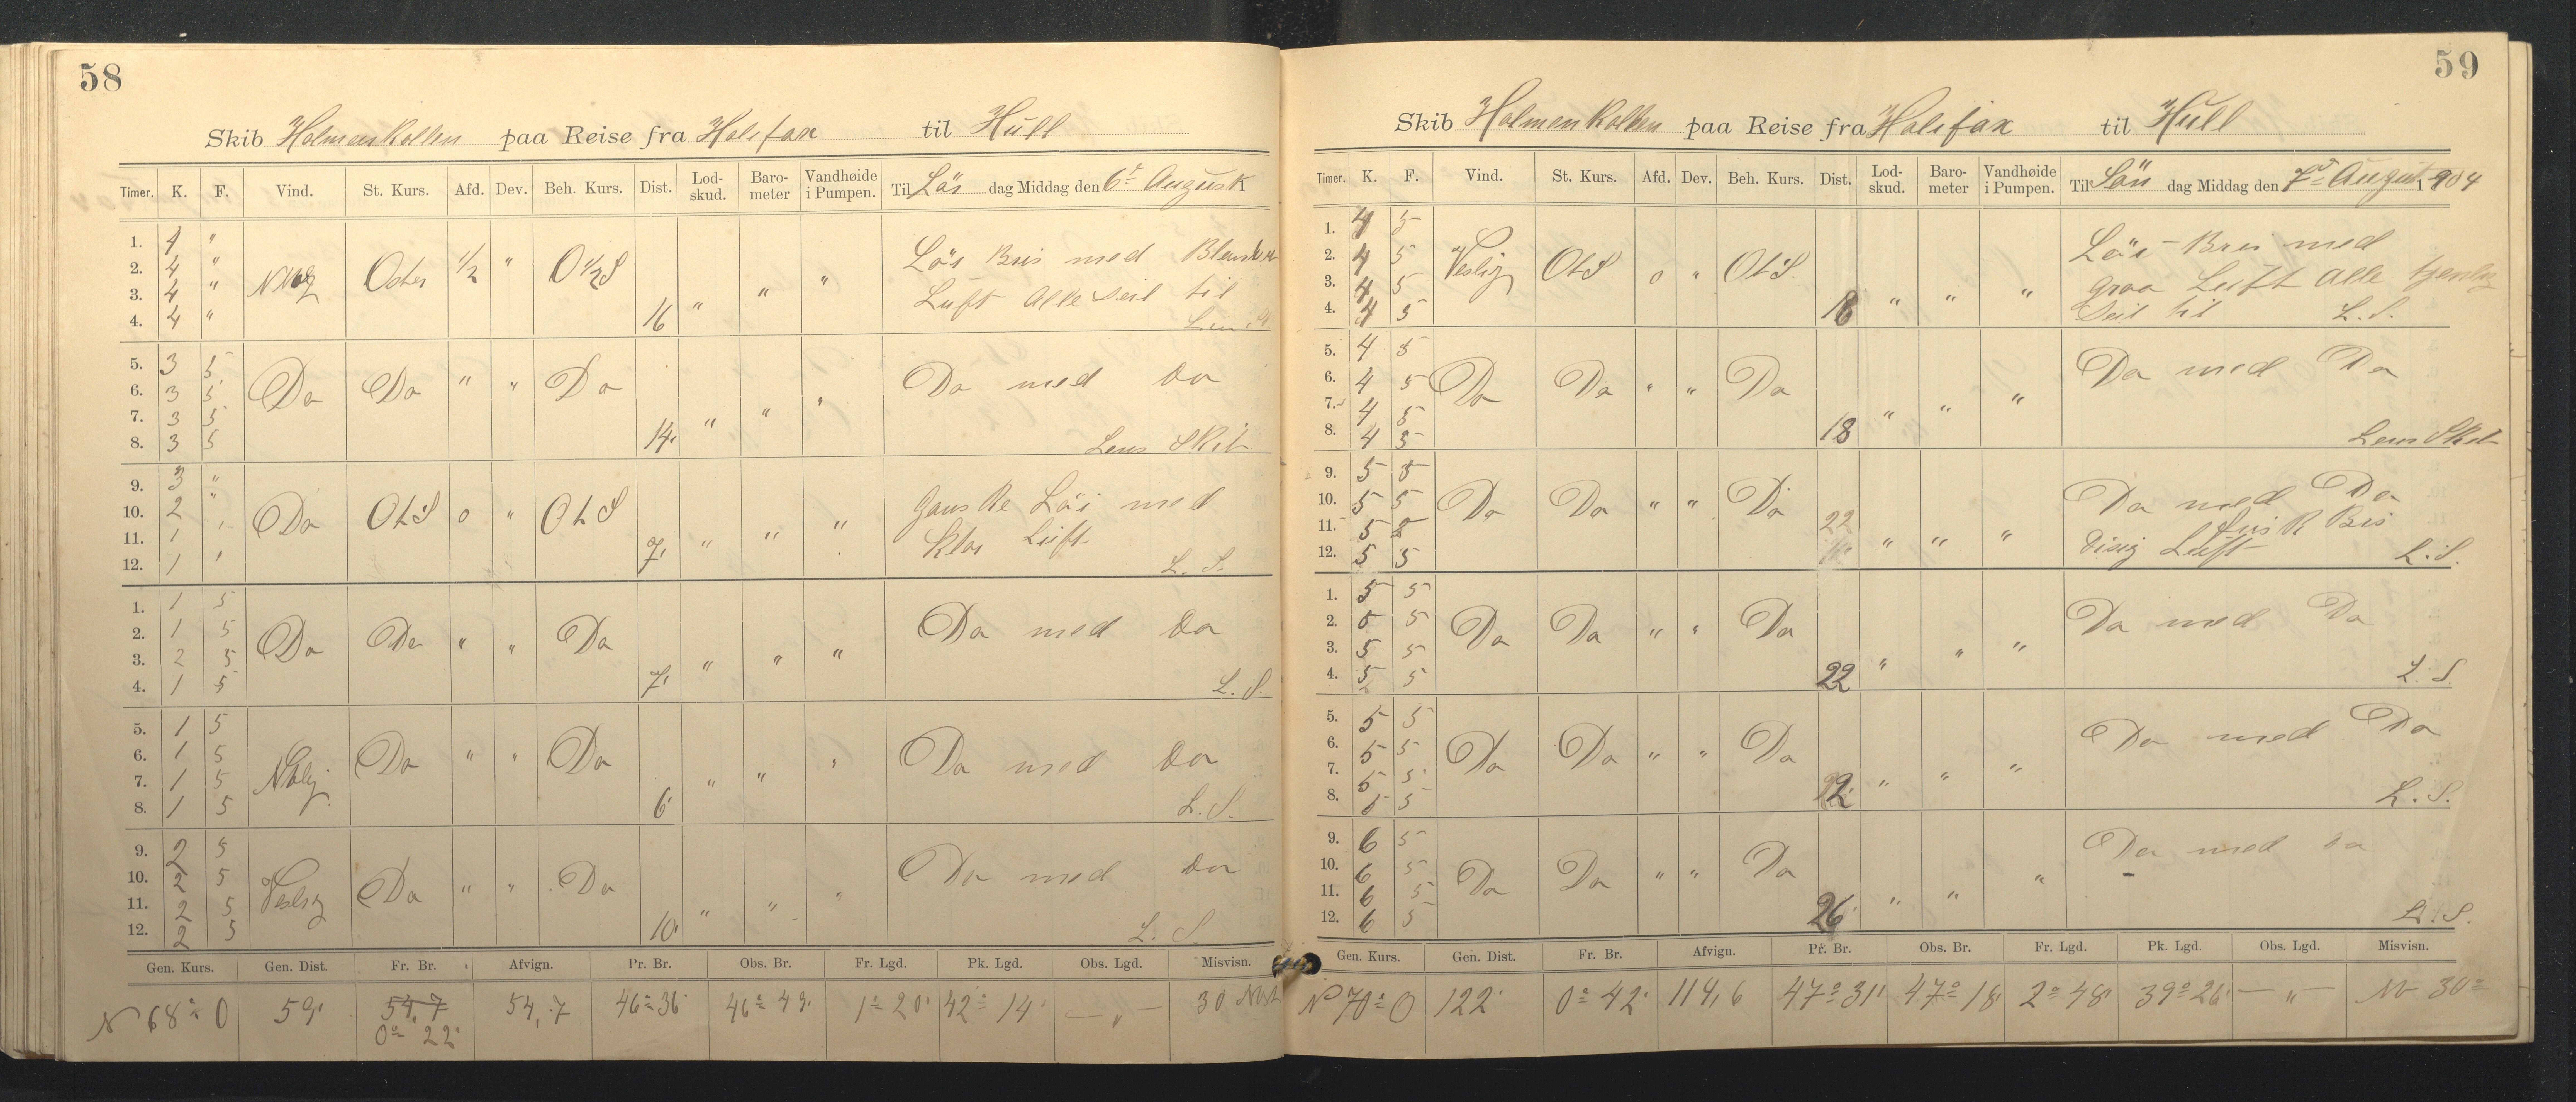 58
Skib Holmenkollen paa Reise fra Halifax til Hull
Timer. K. F. Vind. St. Kurs. Afd. Dev. Beh. Kurs. Dist. Lod-skud. Baro-meter Vandhøide i Pumpen. Til Lös dag Middag den 6te August
1. 4 "
2. 4 " NNV Oster 1/2 " O 1/2 S Lös Bris med
3. 4 " " " Luft alle Seil til
4. 4 " 16 "
5. 3 5
6. 3 5 Do Do " " Do Do med Do
7. 3 5 " " "
8. 3 5 14 Lens Skib
9. 3 "
10. 2 " Do OtS o " OtS Ganske Lös med
11. 1 " " " " klar Luft
12. 1 " 7 L. S.
1. 1 5
2. 1 5 Do Do " " Do Do med Do
3. 2 5 " " "
4. 1 5 7 L. S.
5. 1 5
6. 1 5 Do " " Do Do med Do
7. 1 5 Nolig " " "
8. 1 5 6 L. S.
9. 2 5
10. 2 5 Veslig Do " " Do Do med Do
11. 2 5 " " "
12. 2 5 10 L. S.
Gen. Kurs. Gen. Dist. Fr. Br. Afvign. Pr. Br. Obs. Br. Fr. Lgd. Pk. Lgd. Obs. Lgd. Misvisn.
N 68° O 59' 54,7 54,7 46° 36' 46° 49' 1° 20' 42° 14' — " — 30
0° 22'
59
Skib Holmenkollen paa Reise fra Halifax til Hull
Timer. K. F. Vind. St. Kurs. Afd. Dev. Beh. Kurs. Dist. Lod-skud. Baro-meter Vandhøide i Pumpen. Til Sön dag Middag den 7de August 1904
1. 4 5 Lös Bris med
2. 4 5 Veslig OtS o " OtS graa Luft alle tjenlig
3. 4 5 " " " Seil til L. S.
4. 4 5 18
5. 4 5
6. 4 5 Do Do " " Do Do med Do
7. 4 5 " " "
8. 4 5 18 Lens Skib
9. 5 5
10. 5 5 Do Do " " Do Do med Do
11. 5 5 22 Frisk Bris
12. 5 5 " " " Disig Luft L. S.
1. 5 5
2. 5 5 Do Do " " Do Do med Do
3. 5 5 " " "
4. 5 5 22 L. S.
5. 5 5
6. 5 5 Do Do " " Do Do med Do
7. 5 5 " " "
8. 5 5 22 L. S.
9. 6 5
10. 6 5 Do Do " " Do Do med Do
11. 6 5 " " "
12. 6 5 26 L. S.
Gen. Kurs. Gen. Dist. Fr. Br. Afvign. Pr. Br. Obs. Br. Fr. Lgd. Pk. Lgd. Obs. Lgd. Misvisn.
N 70° O 122' 0° 42' 114,6 47° 31' 47° 18' 2° 48' 39° 26' — " — 30°